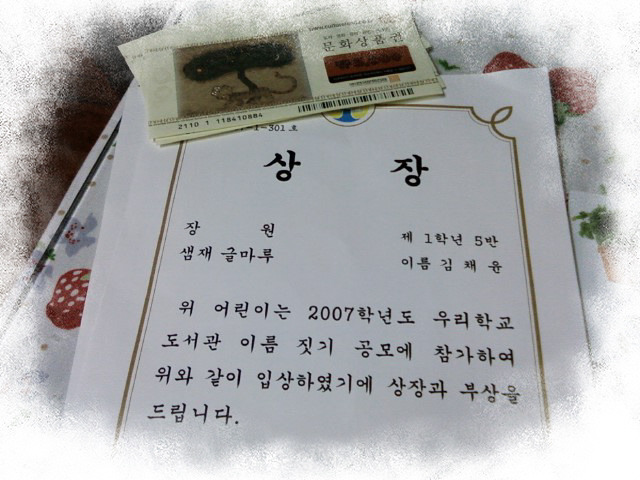 문화상품권
2110 1 118410884
-1-301호
상 장
장 원
샘재 글마루
제 1학년 5반
이름 김 채 윤
위 어린이는 2007학년도 우리학교
도서관 이름 짓기 공모에 참가하여
위와 같이 입상하였기에 상장과 부상을
드립니다.